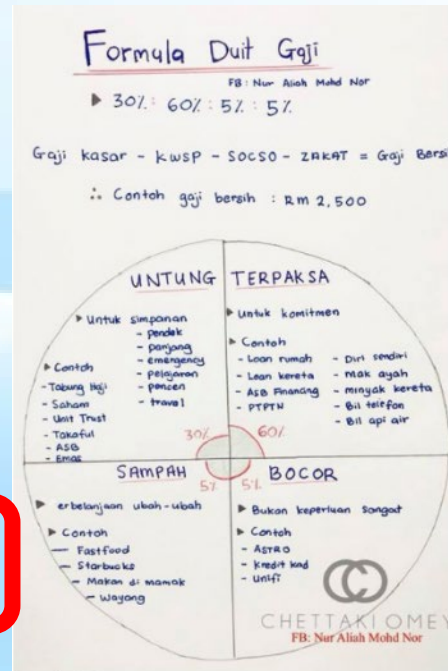 Formula Duit Gaji
FB: Nur Aliah Mohd Nor
▶ 30% : 60% : 5% : 5%
Gaji kasar - KWSP - SOCSO - ZAKAT = Gaji Bersi
∴ Contoh gaji bersih : RM 2,500
UNTUNG
▶ Untuk simpanan
- pendek
- panjang
- emergency
- pelajaran
- pencen
- travel
▶ Contoh
- Tabung Haji
- Saham
- Unit Trust
- Takaful
- ASB
- Emas
30%
TERPAKSA
▶ Untuk komitmen
▶ Contoh
- Loan rumah
- Loan kereta
- ASB Financing
- PTPTN
- Diri sendiri
- mak ayah
- minyak kereta
- Bil telefon
- Bil api air
60%
SAMPAH
5%
▶ erbelanjaan ubah-ubah
▶ Contoh
- Fastfood
- Starbucks
- Makan di mamak
- Wayang
BOCOR
5%
▶ Bukan keperluan sangat
▶ Contoh
- ASTRO
- Kredit kad
- Unifi
CHETTAKI OMEY
FB: Nur Aliah Mohd Nor